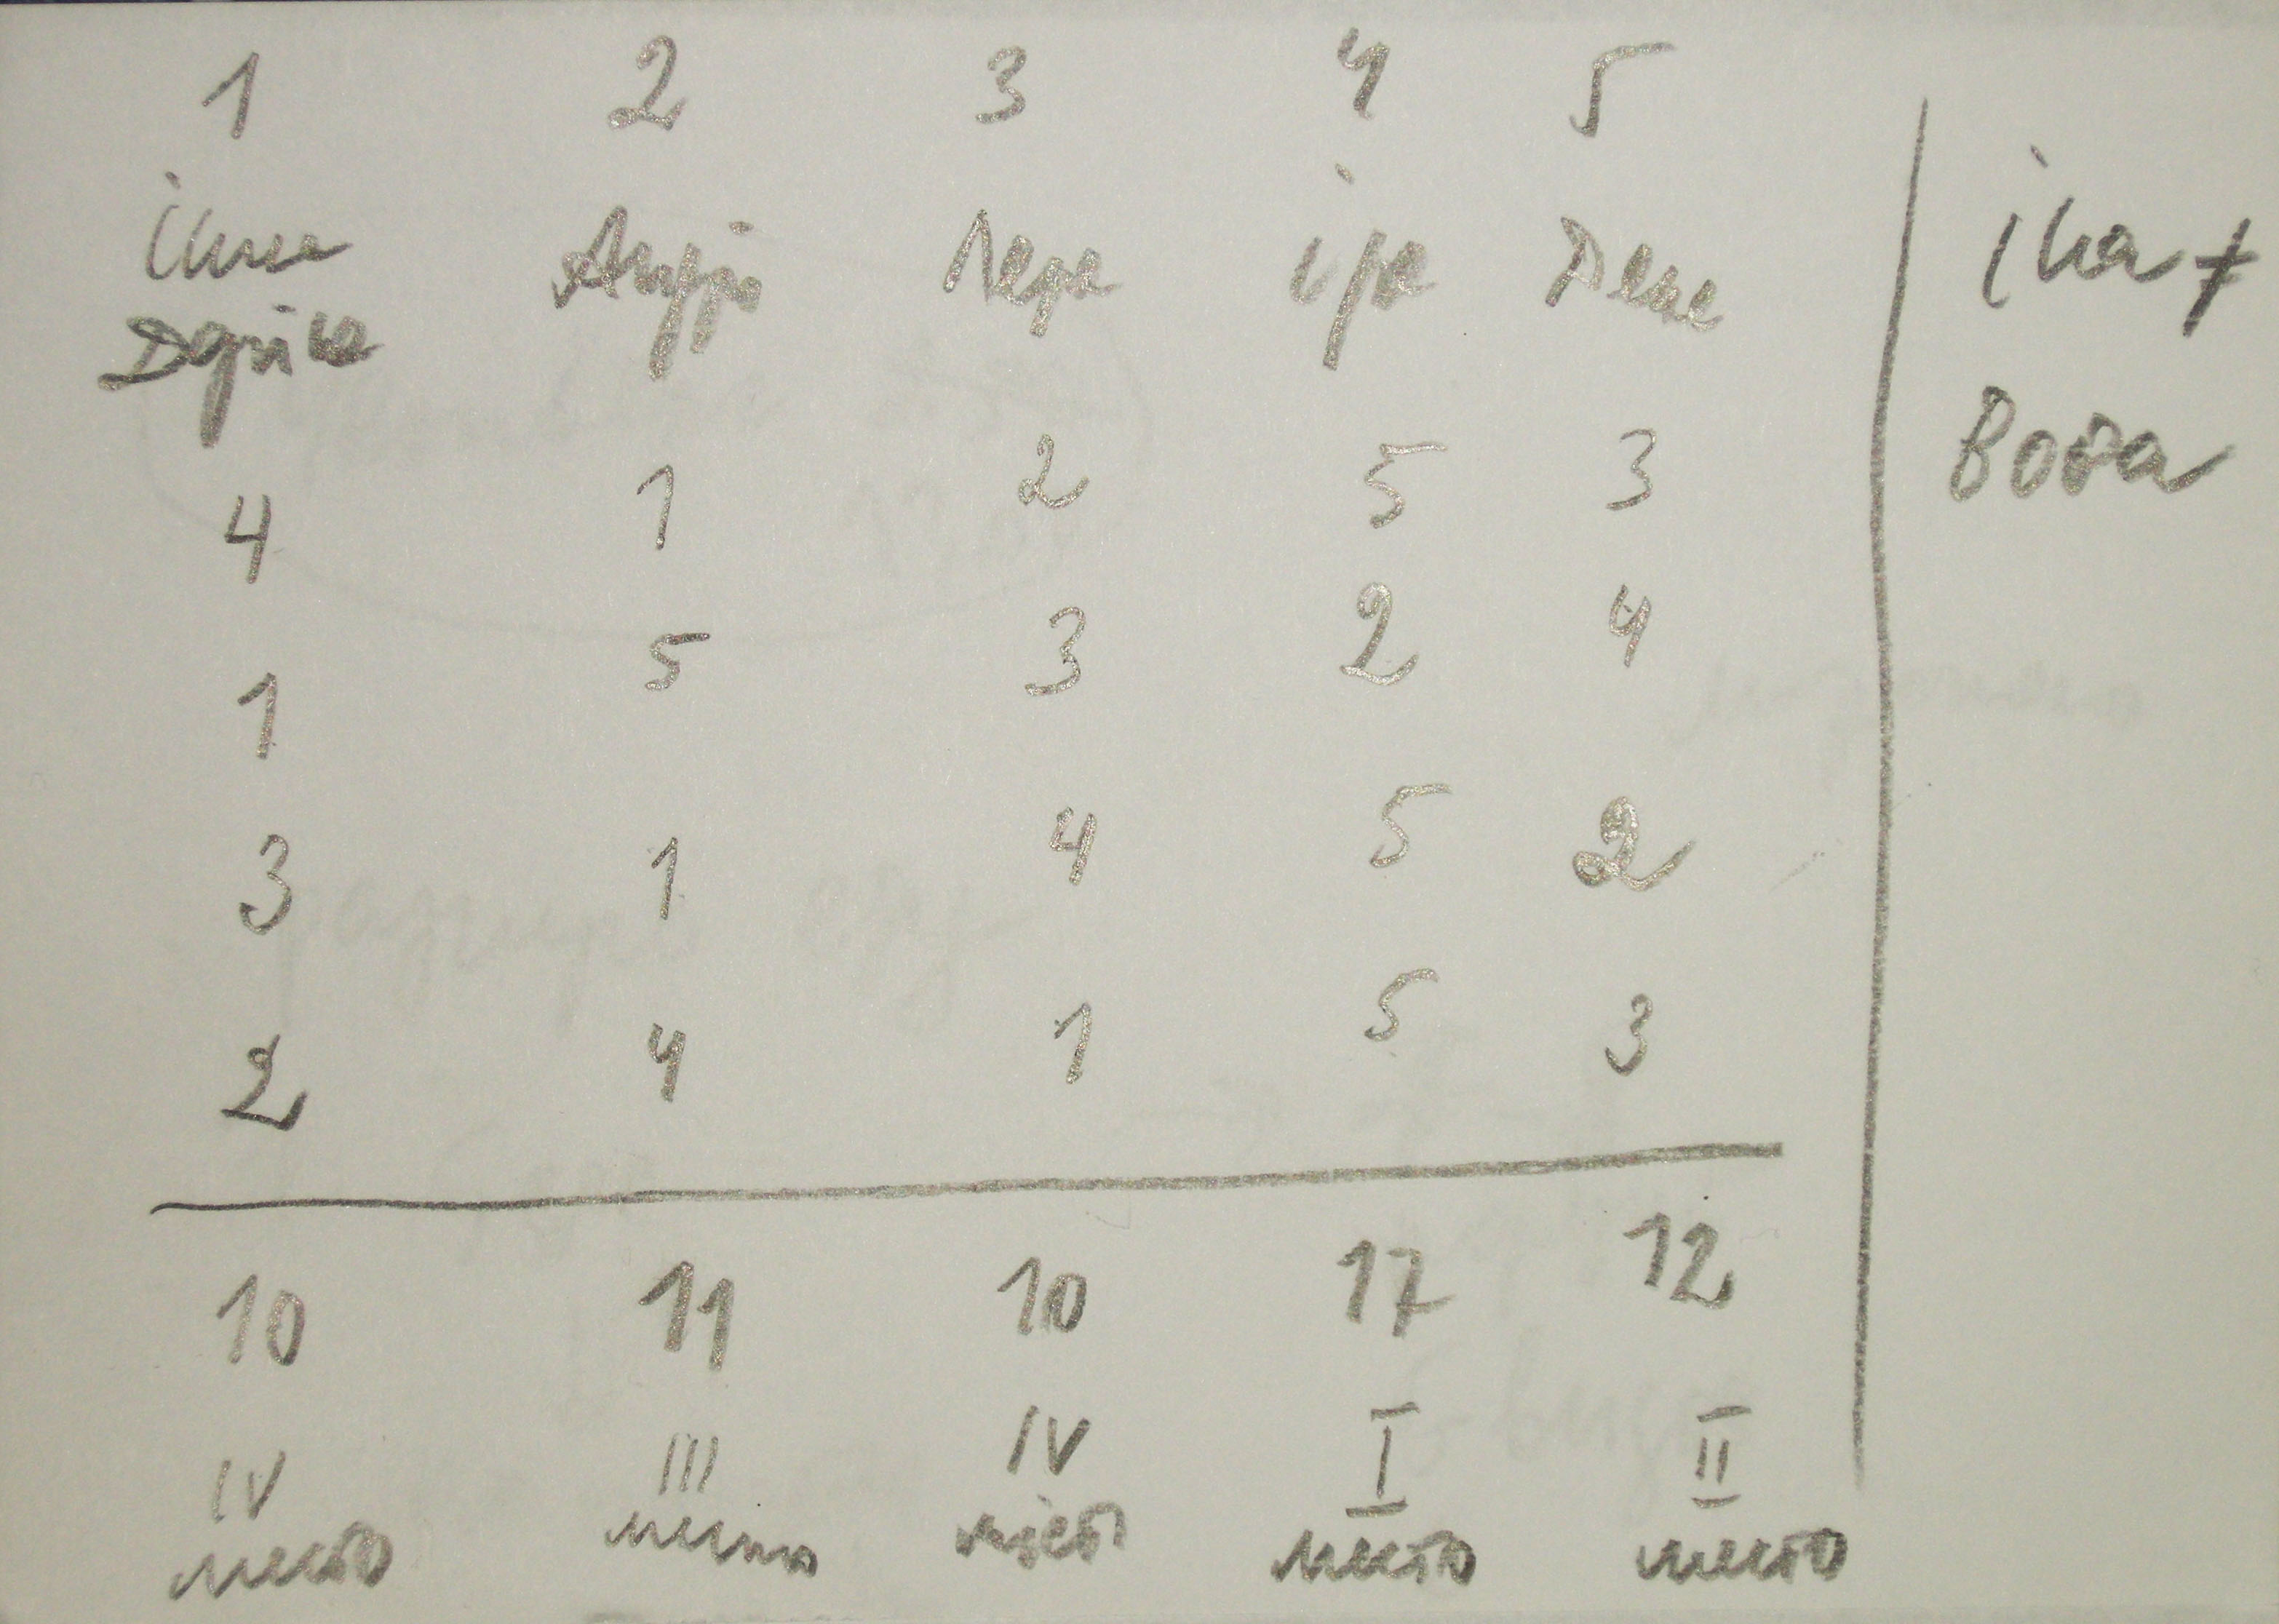 1 2 3 4 5
Лера іра Дене
іка +
Вова
4 1 2 5 3
1 5 3 2 4
3 1 4 5 2
2 4 1 5 3
10 11 10 17 12
IV III IV I II
место место место место